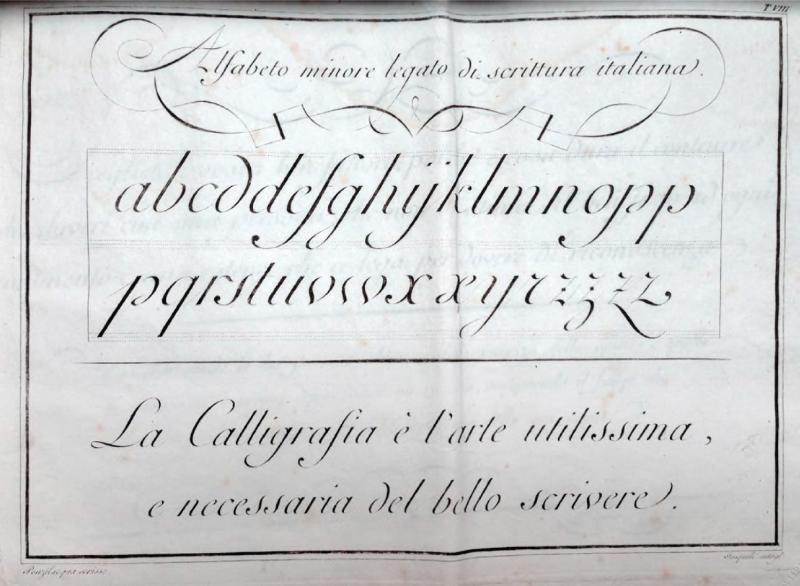 T. VIII
Alfabeto minore legato di scrittura italiana.
abcddefghyklmnopp
pqrstuvwxxyrzzzz
La Calligrafia è l'arte utilissima,
e necessaria del bello scrivere.